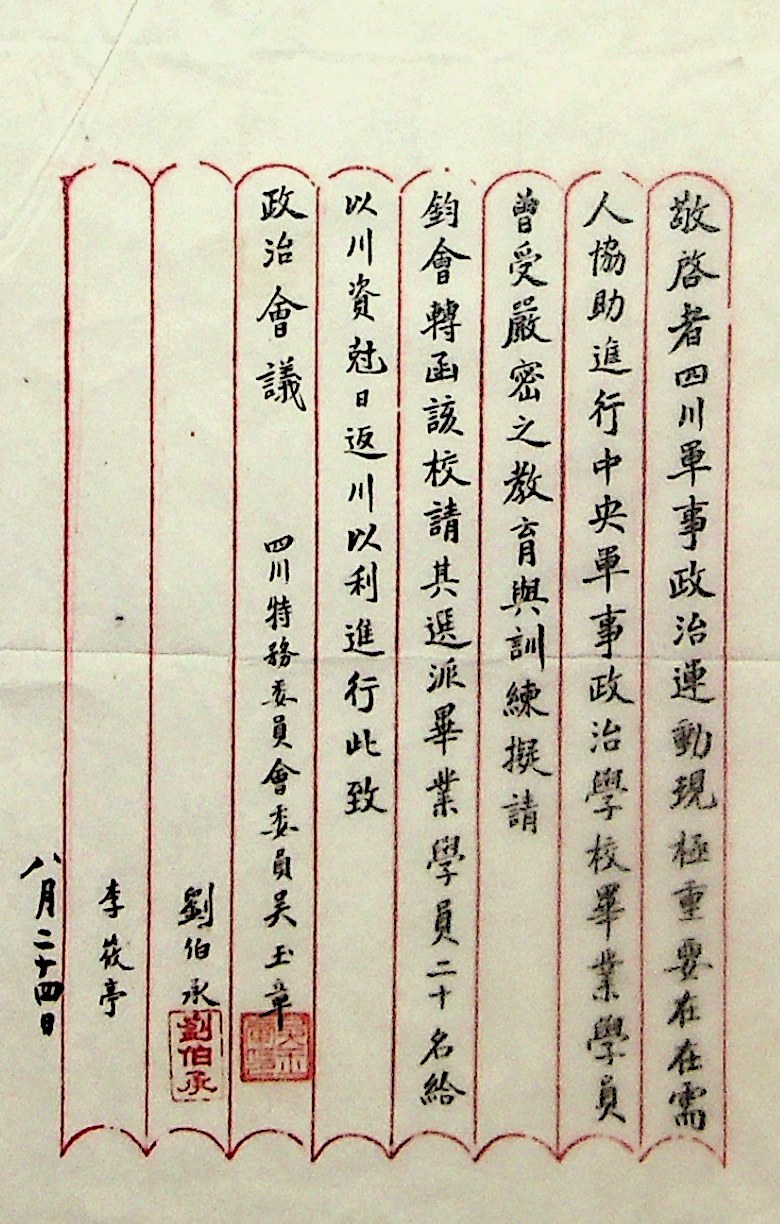 敬啓者四川軍事政治運動現極重要在在需
人協助進行中央軍事政治學校畢業學員
曾受嚴密之教育與訓練擬請
鈞會轉函該校請其選派畢業學員二十名給
以川資尅日返川以利進行此致
政治會議
四川特務委員會委員吴玉章
劉伯承
劉伯承
李筱亭
八月二十四日